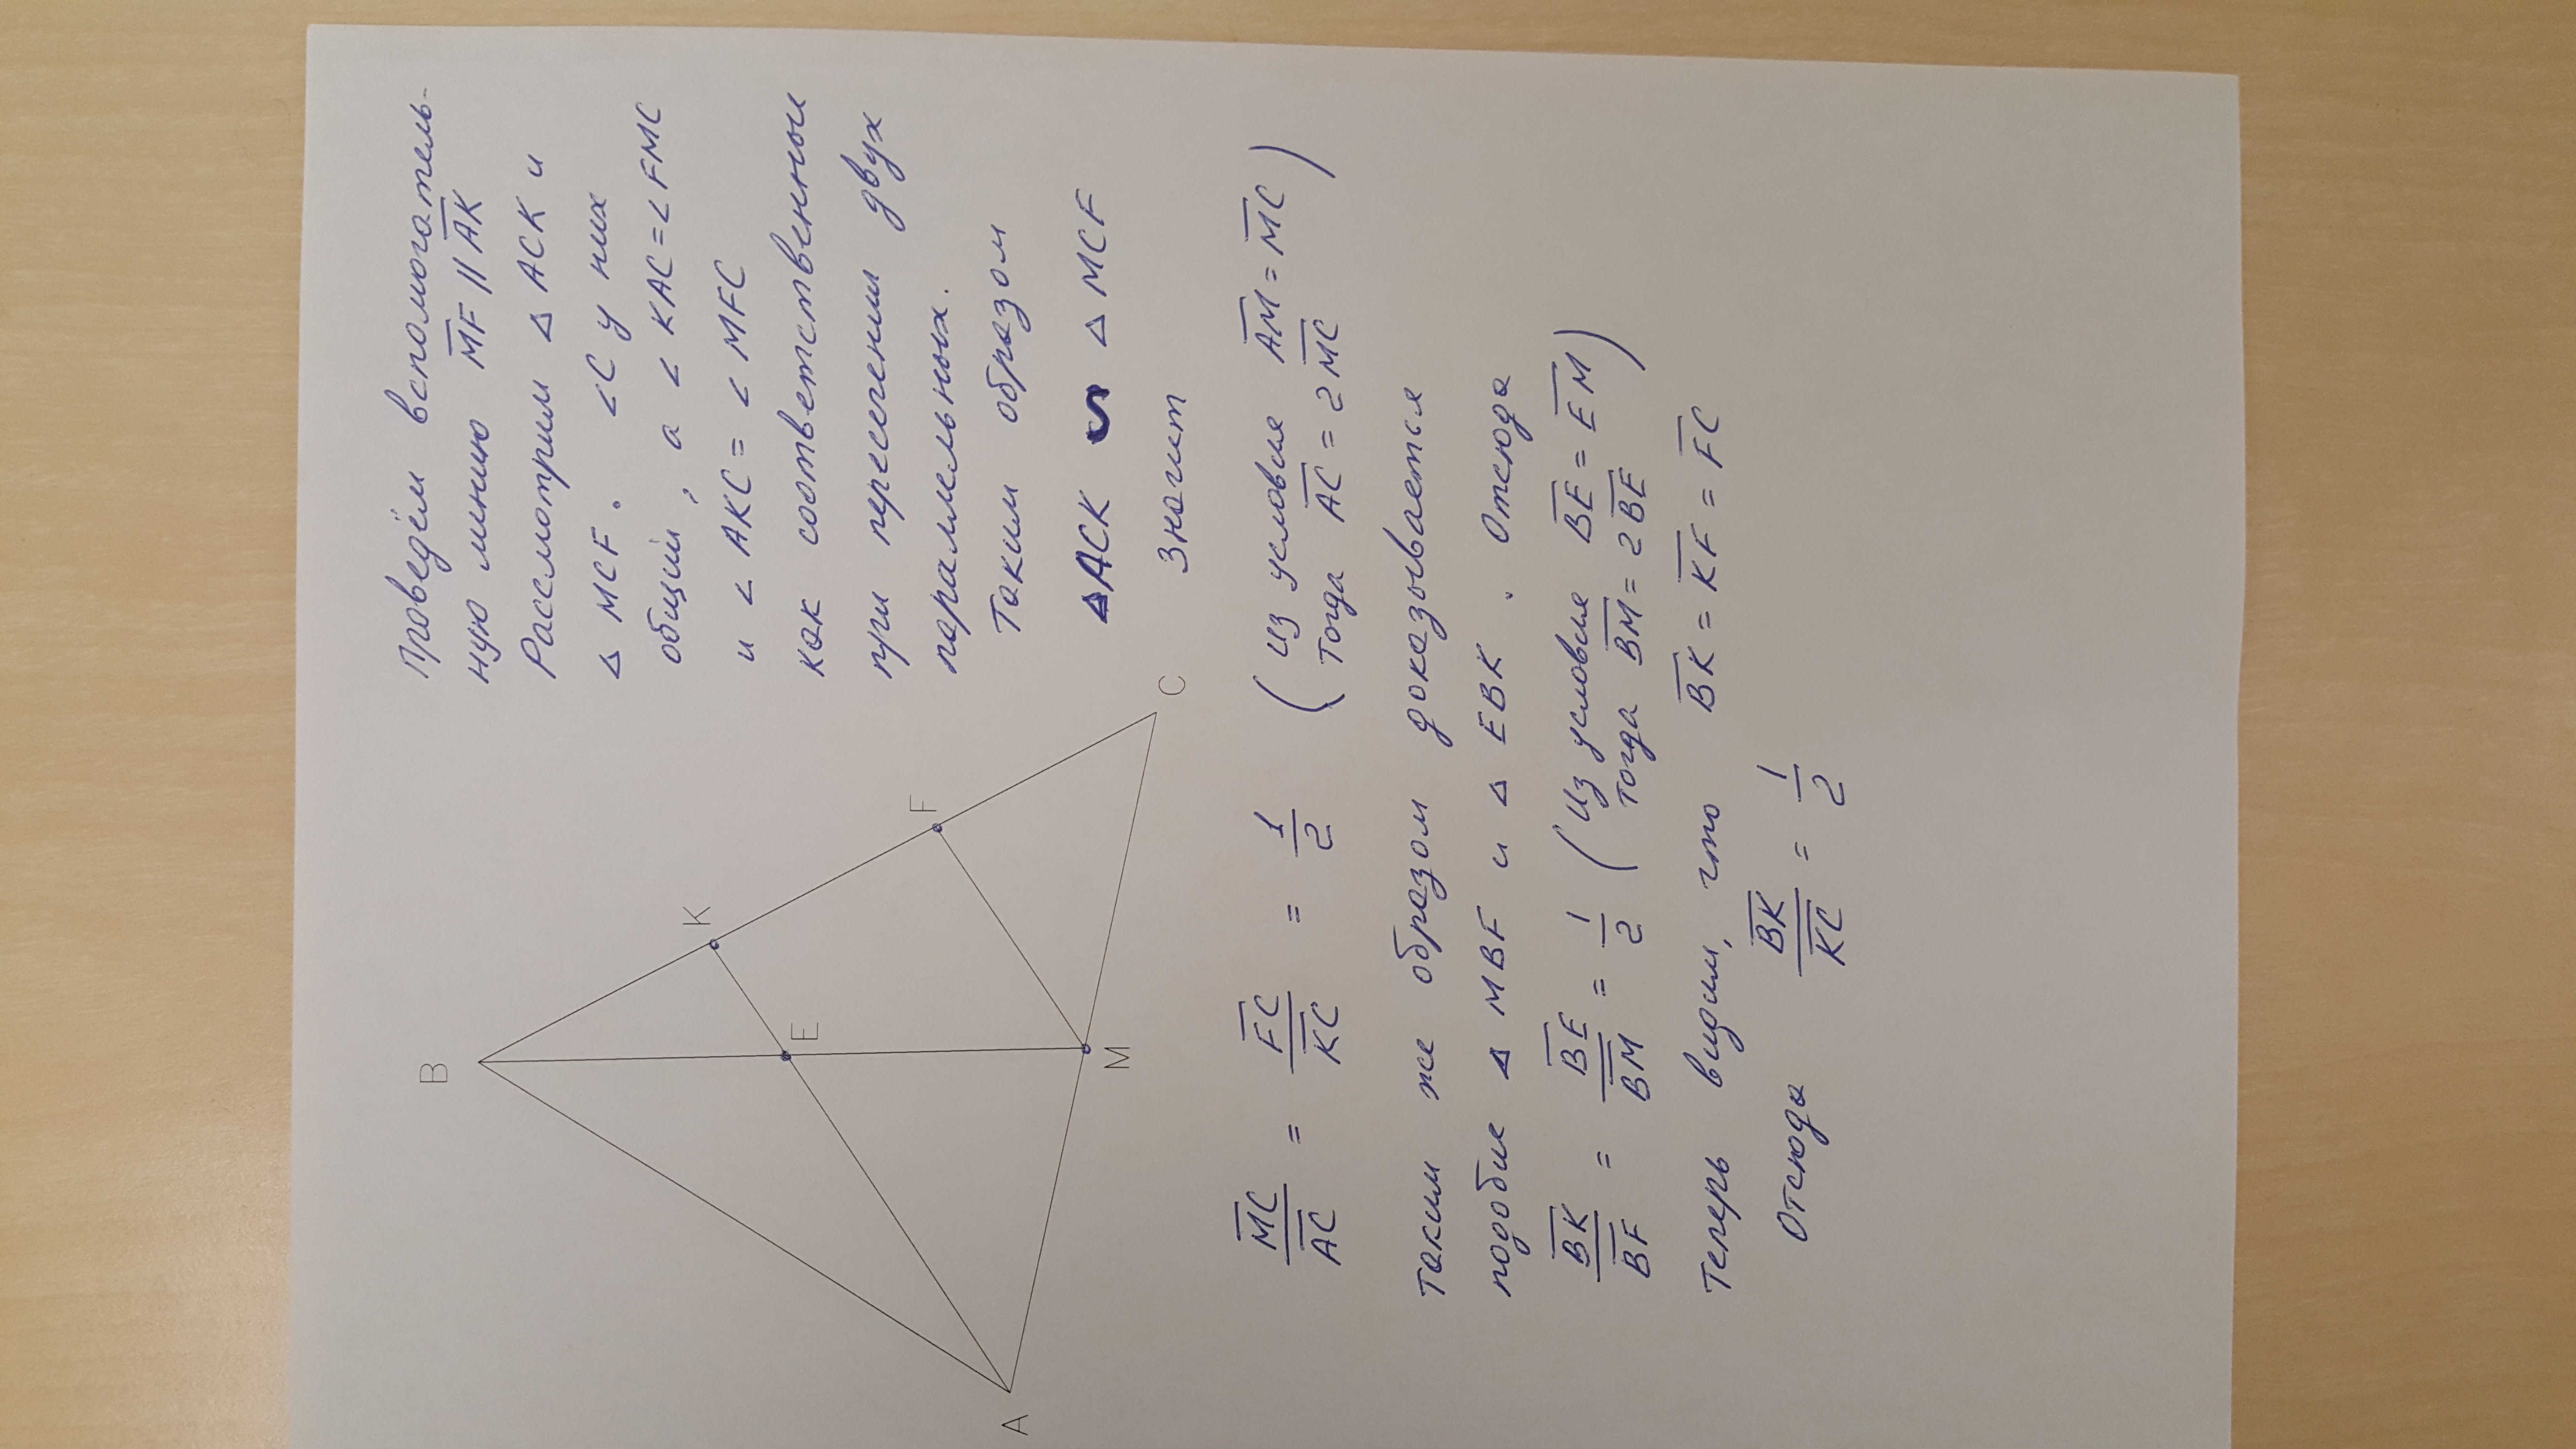 Проведём вспомогатель-
ную линию M̅F̅ || A̅K̅
Рассмотрим △ ACK и
△ MCF. ∠C у них
общий, а ∠ KAC = ∠ FMC
и ∠ AKC = ∠ MFC
как соответственные
при пересечении двух
параллельных.
Таким образом
△ACK ∽ △ MCF
Значит
B
K
E
F
A
M
C
M̅C̅/A̅C̅ = F̅C̅/K̅C̅ = 1/2 (Из условия A̅M̅ = M̅C̅
Тогда A̅C̅ = 2 M̅C̅)
Таким же образом доказывается
подобие △ MBF и △ EBK. Отсюда
B̅K̅/B̅F̅ = B̅E̅/B̅M̅ = 1/2 (Из условия B̅E̅ = E̅M̅
Тогда B̅M̅ = 2 B̅E̅)
Теперь видим, что B̅K̅ = K̅F̅ = F̅C̅
Отсюда B̅K̅/K̅C̅ = 1/2